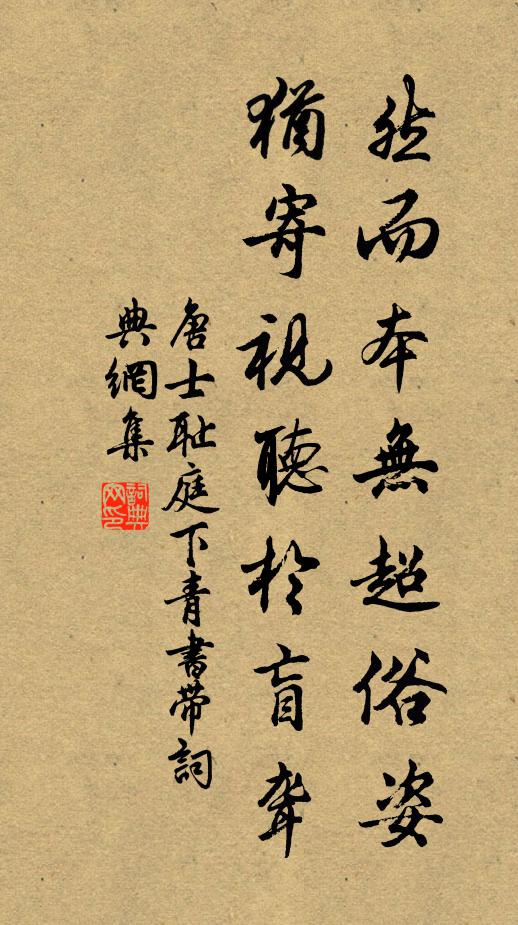 然而本無超俗姿
猶寄視聽於盲聾
唐士耻庭下青書帶詞
典網集
詞典
网印